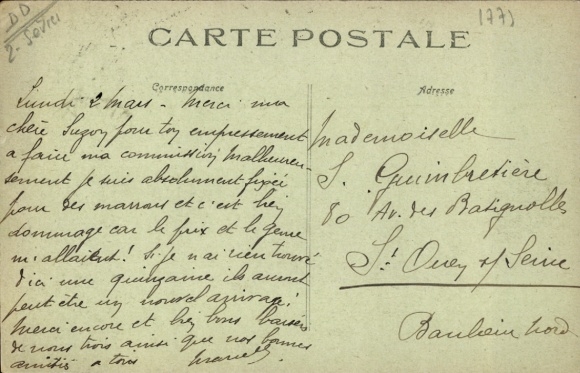 DD
2- Sèvres
1773
CARTE POSTALE
Correspondance
Adresse
Lundi 2 Mars - Merci ma
chère Suzon pour ton empressement
a faire ma commission, malheureu-
sement je suis absolument fixée
pour des marrons et c'est bien
dommage car le prix et le genre
m'allaient! Si je n'ai rien trouvé
d'ici une quinzaine ils auront
peut être un nouvel arrivage!
Merci encore et bien bons baisers
de nous trois ainsi que nos bonnes
amitiés a tous Marcelle
Mademoiselle
S. Guimbretière
80 Av. des Batignolles
St Ouen s/ Seine
Banlieue Nord